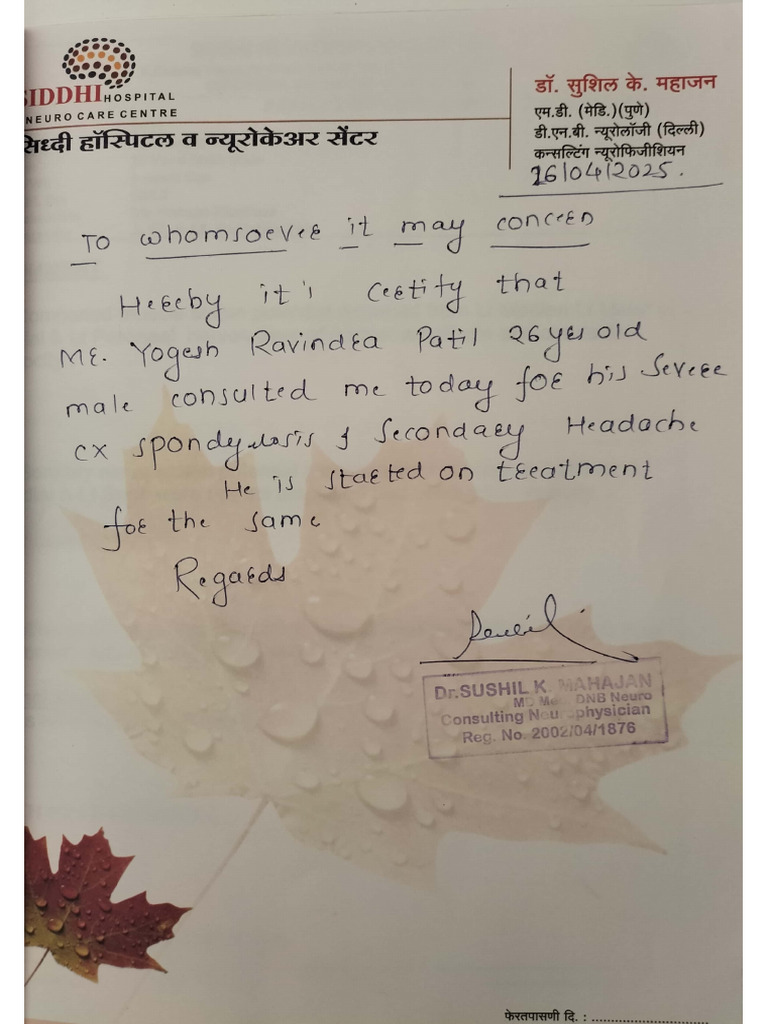 SIDDHI HOSPITAL
NEURO CARE CENTRE
सिध्दी हॉस्पिटल व न्यूरोकेअर सेंटर
डॉ. सुशिल के. महाजन
एम.डी. (मेडि.)(पुणे)
डी.एन.बी. न्यूरोलॉजी (दिल्ली)
कन्सल्टिंग न्यूरोफिजीशियन
16/04/2025.
To whomsoever it may concern
Hereby it's certify that
Mr. Yogesh Ravindra Patil 26 yrs old
male consulted me today for his severe
cx spondylosis & Secondary Headache
He is started on treatment
for the same
Regards
Dr.SUSHIL K. MAHAJAN
MD Med DNB Neuro
Consulting Neurophysician
Reg. No. 2002/04/1876
फेरतपासणी दि. : ..............................